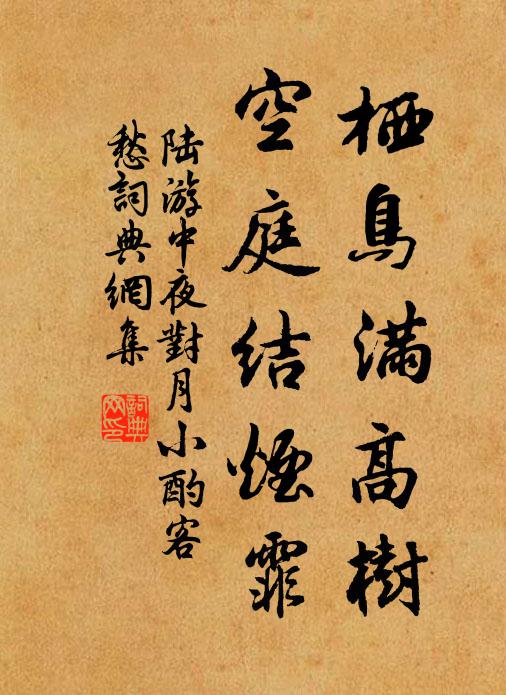 栖鳥滿高樹
空庭結煙霏
陸游中夜對月小酌客
愁詞典網集
詞典網印